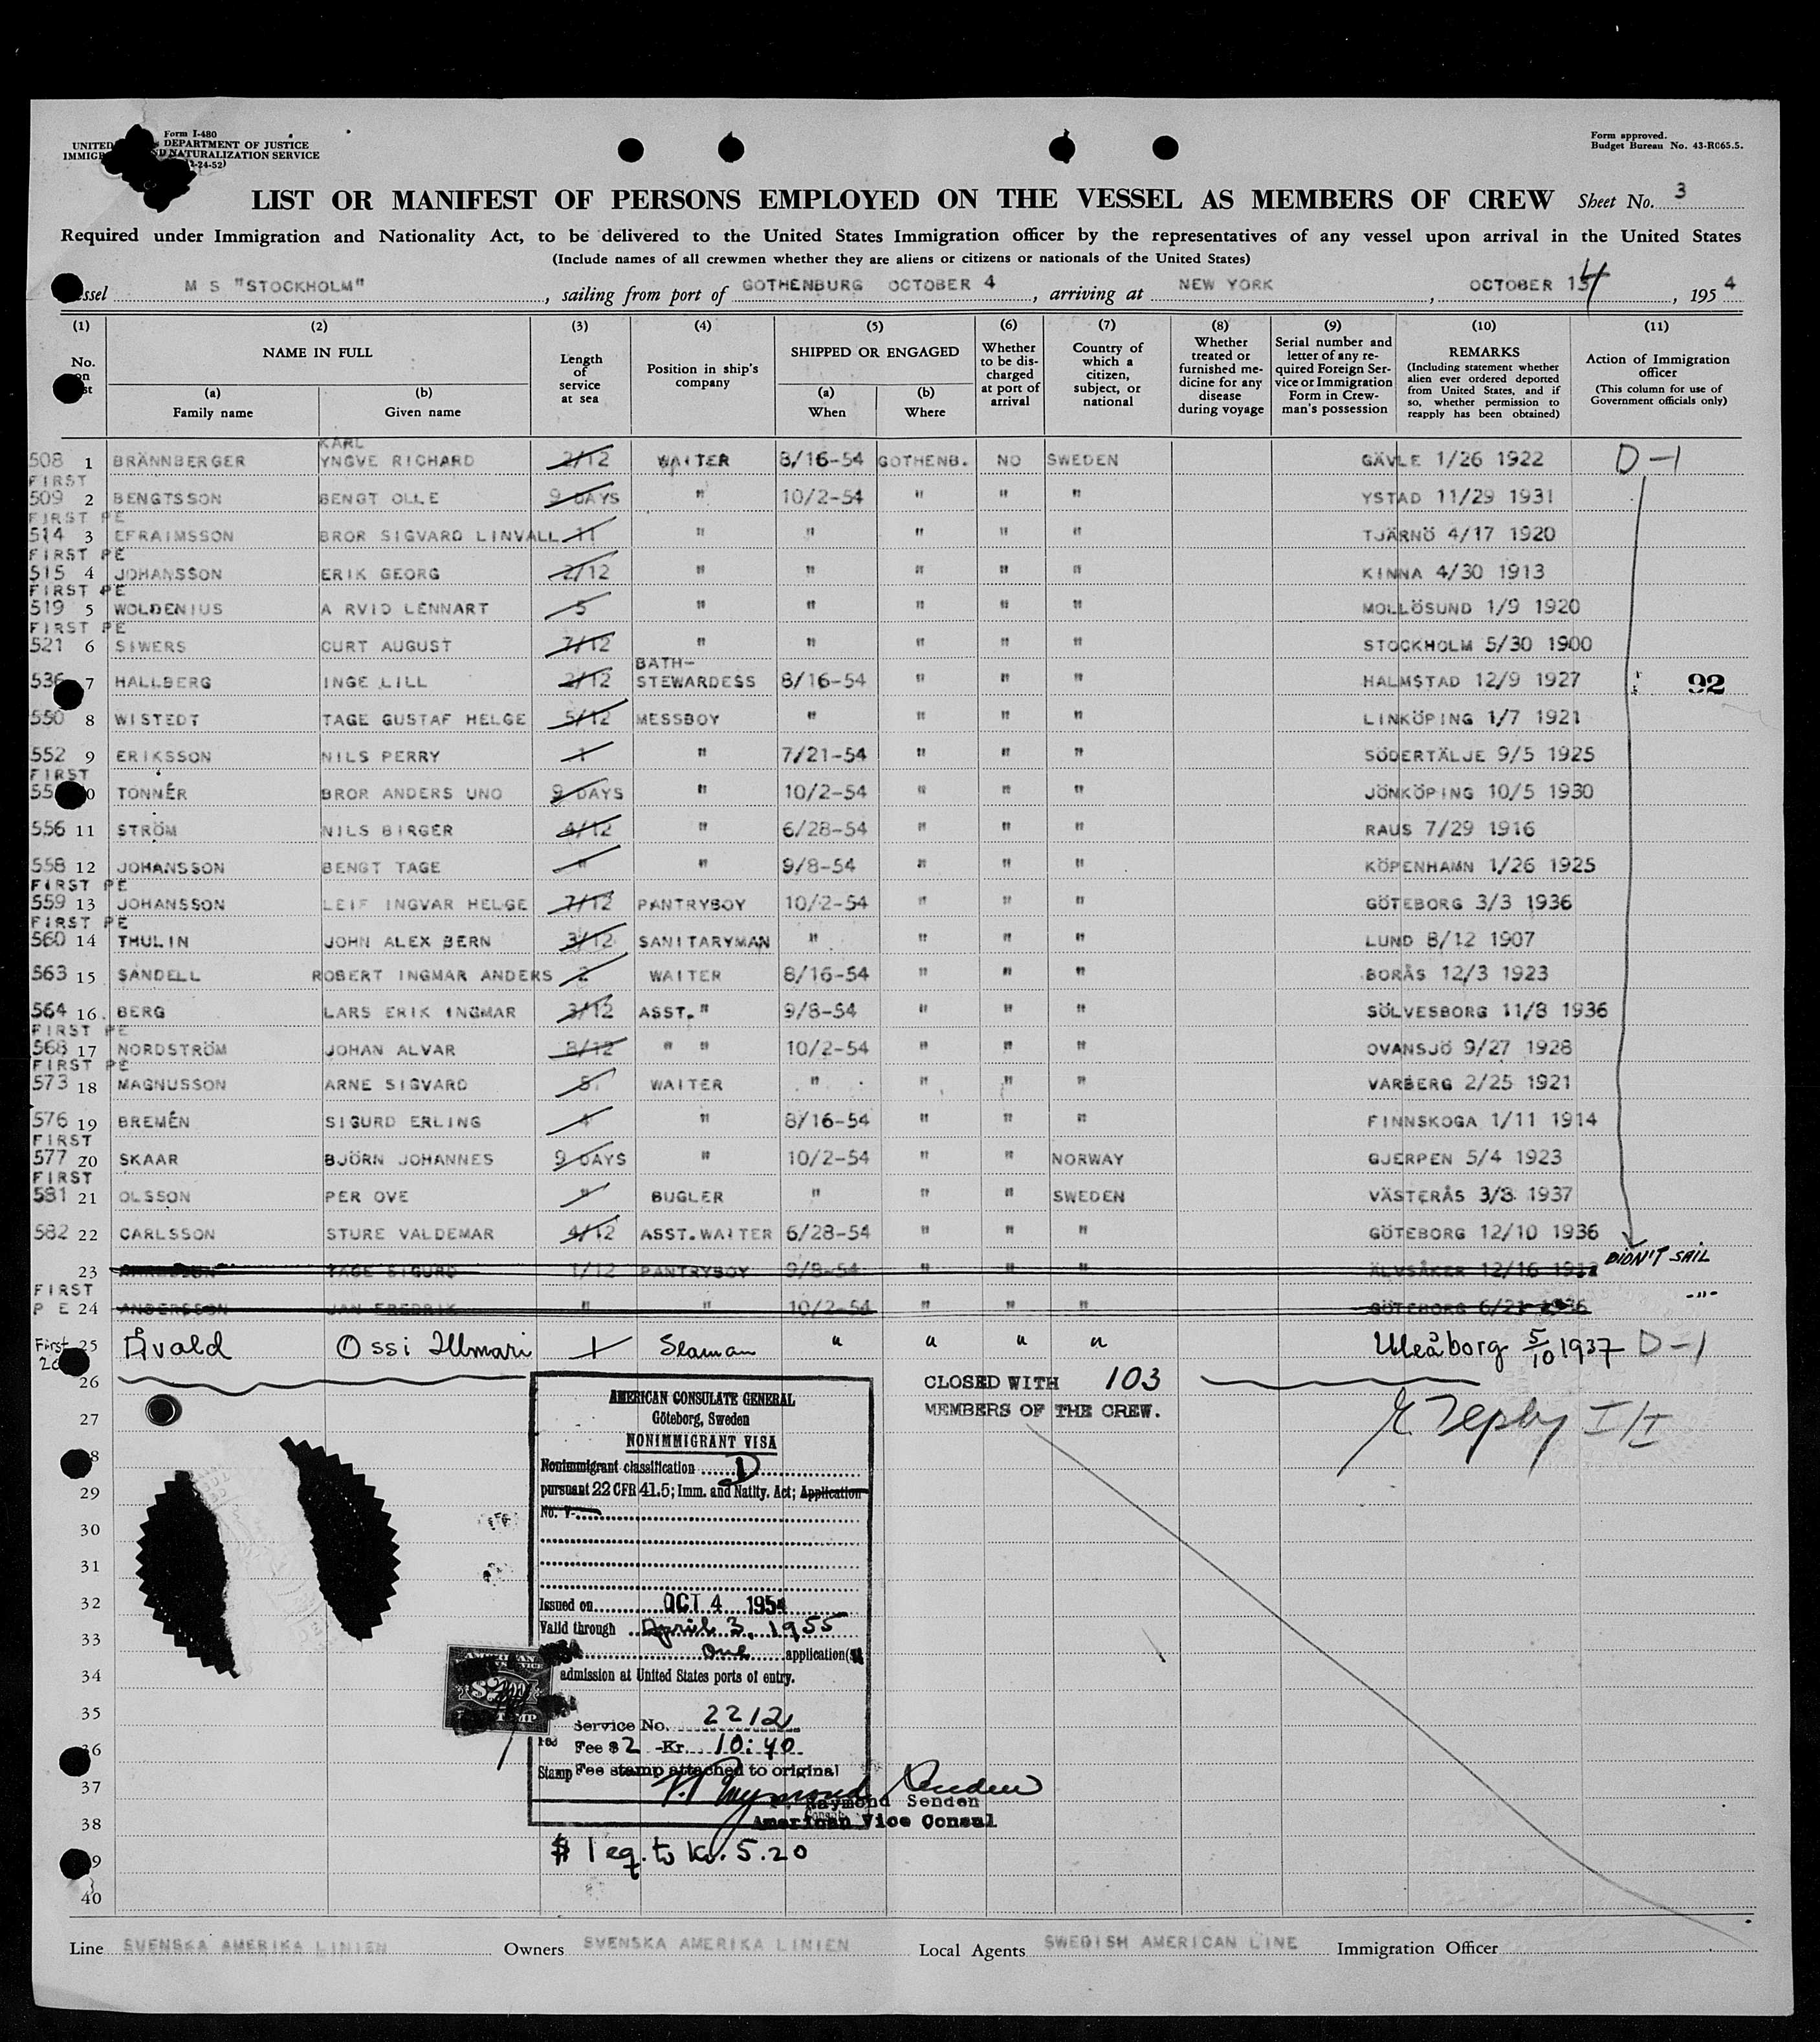 Form I-480
UNITED DEPARTMENT OF JUSTICE
IMMIGR ND NATURALIZATION SERVICE
-24-52)
Form approved.
Budget Bureau No. 43-R065.5.
LIST OR MANIFEST OF PERSONS EMPLOYED ON THE VESSEL AS MEMBERS OF CREW Sheet No. 3
Required under Immigration and Nationality Act, to be delivered to the United States Immigration officer by the representatives of any vessel upon arrival in the United States
(Include names of all crewmen whether they are aliens or citizens or nationals of the United States)
essel M S "STOCKHOLM", sailing from port of GOTHENBURG OCTOBER 4, arriving at NEW YORK, OCTOBER 14, 1954
(1) (2) (3) (4) (5) (6) (7) (8) (9) (10) (11)
No. on st
NAME IN FULL
(a) Family name
(b) Given name
Length of service at sea
Position in ship's company
SHIPPED OR ENGAGED
(a) When
(b) Where
Whether to be discharged at port of arrival
Country of which a citizen, subject, or national
Whether treated or furnished medicine for any disease during voyage
Serial number and letter of any required Foreign Service or Immigration Form in Crewman's possession
REMARKS
(Including statement whether alien ever ordered deported from United States, and if so, whether permission to reapply has been obtained)
Action of Immigration officer
(This column for use of Government officials only)
KARL
508 1 BRÄNNBERGER YNGVE RICHARD 2/12 WAITER 8/16-54 GOTHENB. NO SWEDEN GÄVLE 1/26 1922 D-1
FIRST
509 2 BENGTSSON BENGT OLLE 9 DAYS " 10/2-54 " " " YSTAD 11/29 1931
FIRST PE
514 3 EFRAIMSSON BROR SIGVARD LINVALL 11 " " " " " TJÄRNÖ 4/17 1920
FIRST PE
515 4 JOHANSSON ERIK GEORG 2/12 " " " " " KINNA 4/30 1913
FIRST PE
519 5 WOLDENIUS A RVID LENNART 5 " " " " " MOLLÖSUND 1/9 1920
FIRST PE
521 6 SIWERS CURT AUGUST 7/12 " " " " " STOCKHOLM 5/30 1900
BATH-
536 7 HALLBERG INGE LILL 2/12 STEWARDESS 8/16-54 " " " HALMSTAD 12/9 1927 92
550 8 WISTEDT TAGE GUSTAF HELGE 5/12 MESSBOY " " " " LINKÖPING 1/7 1921
552 9 ERIKSSON NILS PERRY 1 " 7/21-54 " " " SÖDERTÄLJE 9/5 1925
FIRST
55 0 TONNÉR BROR ANDERS UNO 9 DAYS " 10/2-54 " " " JÖNKÖPING 10/5 1930
556 11 STRÖM NILS BIRGER 4/12 " 6/28-54 " " " RAUS 7/29 1916
558 12 JOHANSSON BENGT TAGE " " 9/8-54 " " " KÖPENHAMN 1/26 1925
FIRST PE
559 13 JOHANSSON LEIF INGVAR HELGE 7/12 PANTRYBOY 10/2-54 " " " GÖTEBORG 3/3 1936
FIRST PE
560 14 THULIN JOHN ALEX BERN 3/12 SANITARYMAN " " " " LUND 8/12 1907
563 15 SANDELL ROBERT INGMAR ANDERS 2 WAITER 8/16-54 " " " BORÅS 12/3 1923
564 16. BERG LARS ERIK INGMAR 3/12 ASST." 9/8-54 " " " SÖLVESBORG 11/8 1936
FIRST PE
568 17 NORDSTRÖM JOHAN ALVAR 8/12 " " 10/2-54 " " " OVANSJÖ 9/27 1928
FIRST PE
573 18 MAGNUSSON ARNE SIGVARD 5 WAITER " " " " VARBERG 2/25 1921
576 19 BREMÉN SIGURD ERLING 4 " 8/16-54 " " " FINNSKOGA 1/11 1914
FIRST
577 20 SKAAR BJÖRN JOHANNES 9 DAYS " 10/2-54 " " NORWAY GJERPEN 5/4 1923
FIRST
581 21 OLSSON PER OVE " BUGLER " " " SWEDEN VÄSTERÅS 3/8 1937
582 22 CARLSSON STURE VALDEMAR 4/12 ASST.WAITER 6/28-54 " " " GÖTEBORG 12/10 1936
23 TAGE SIGURD 1/12 PANTRYBOY 9/8-54 " " " ÄLVSÅKER 12/16 DIDN'T SAIL
FIRST
P E 24 ANDERSSON JAN FREDRIK " " 10/2-54 " " " GÖTEBORG 6/21 1936 -"-
First 25 Åvald Ossi Illmari 1 Seaman " " " " Uleåborg 5/10 1937 D-1
26
27
8
29
30
31
32
33
34
35
36
37
38
9
40
CLOSED WITH 103
MEMBERS OF THE CREW.
AMERICAN CONSULATE GENERAL
Göteborg, Sweden
NONIMMIGRANT VISA
Nonimmigrant classification D
pursuant 22 CFR 41.5; Imm. and Natlty. Act; Application
No. V-
Issued on OCT 4 1954
Valid through April 3, 1955
One application(s)
admission at United States ports of entry.
Service No. 2212
Fee $ 2 -Kr. 10:40
Stamp Fee stamp attached to original
Raymond Senden
American Vice Consul
$ 1 eq. to Kr. 5.20
Line SVENSKA AMERIKA LINIEN Owners SVENSKA AMERIKA LINIEN Local Agents SWEDISH AMERICAN LINE Immigration Officer